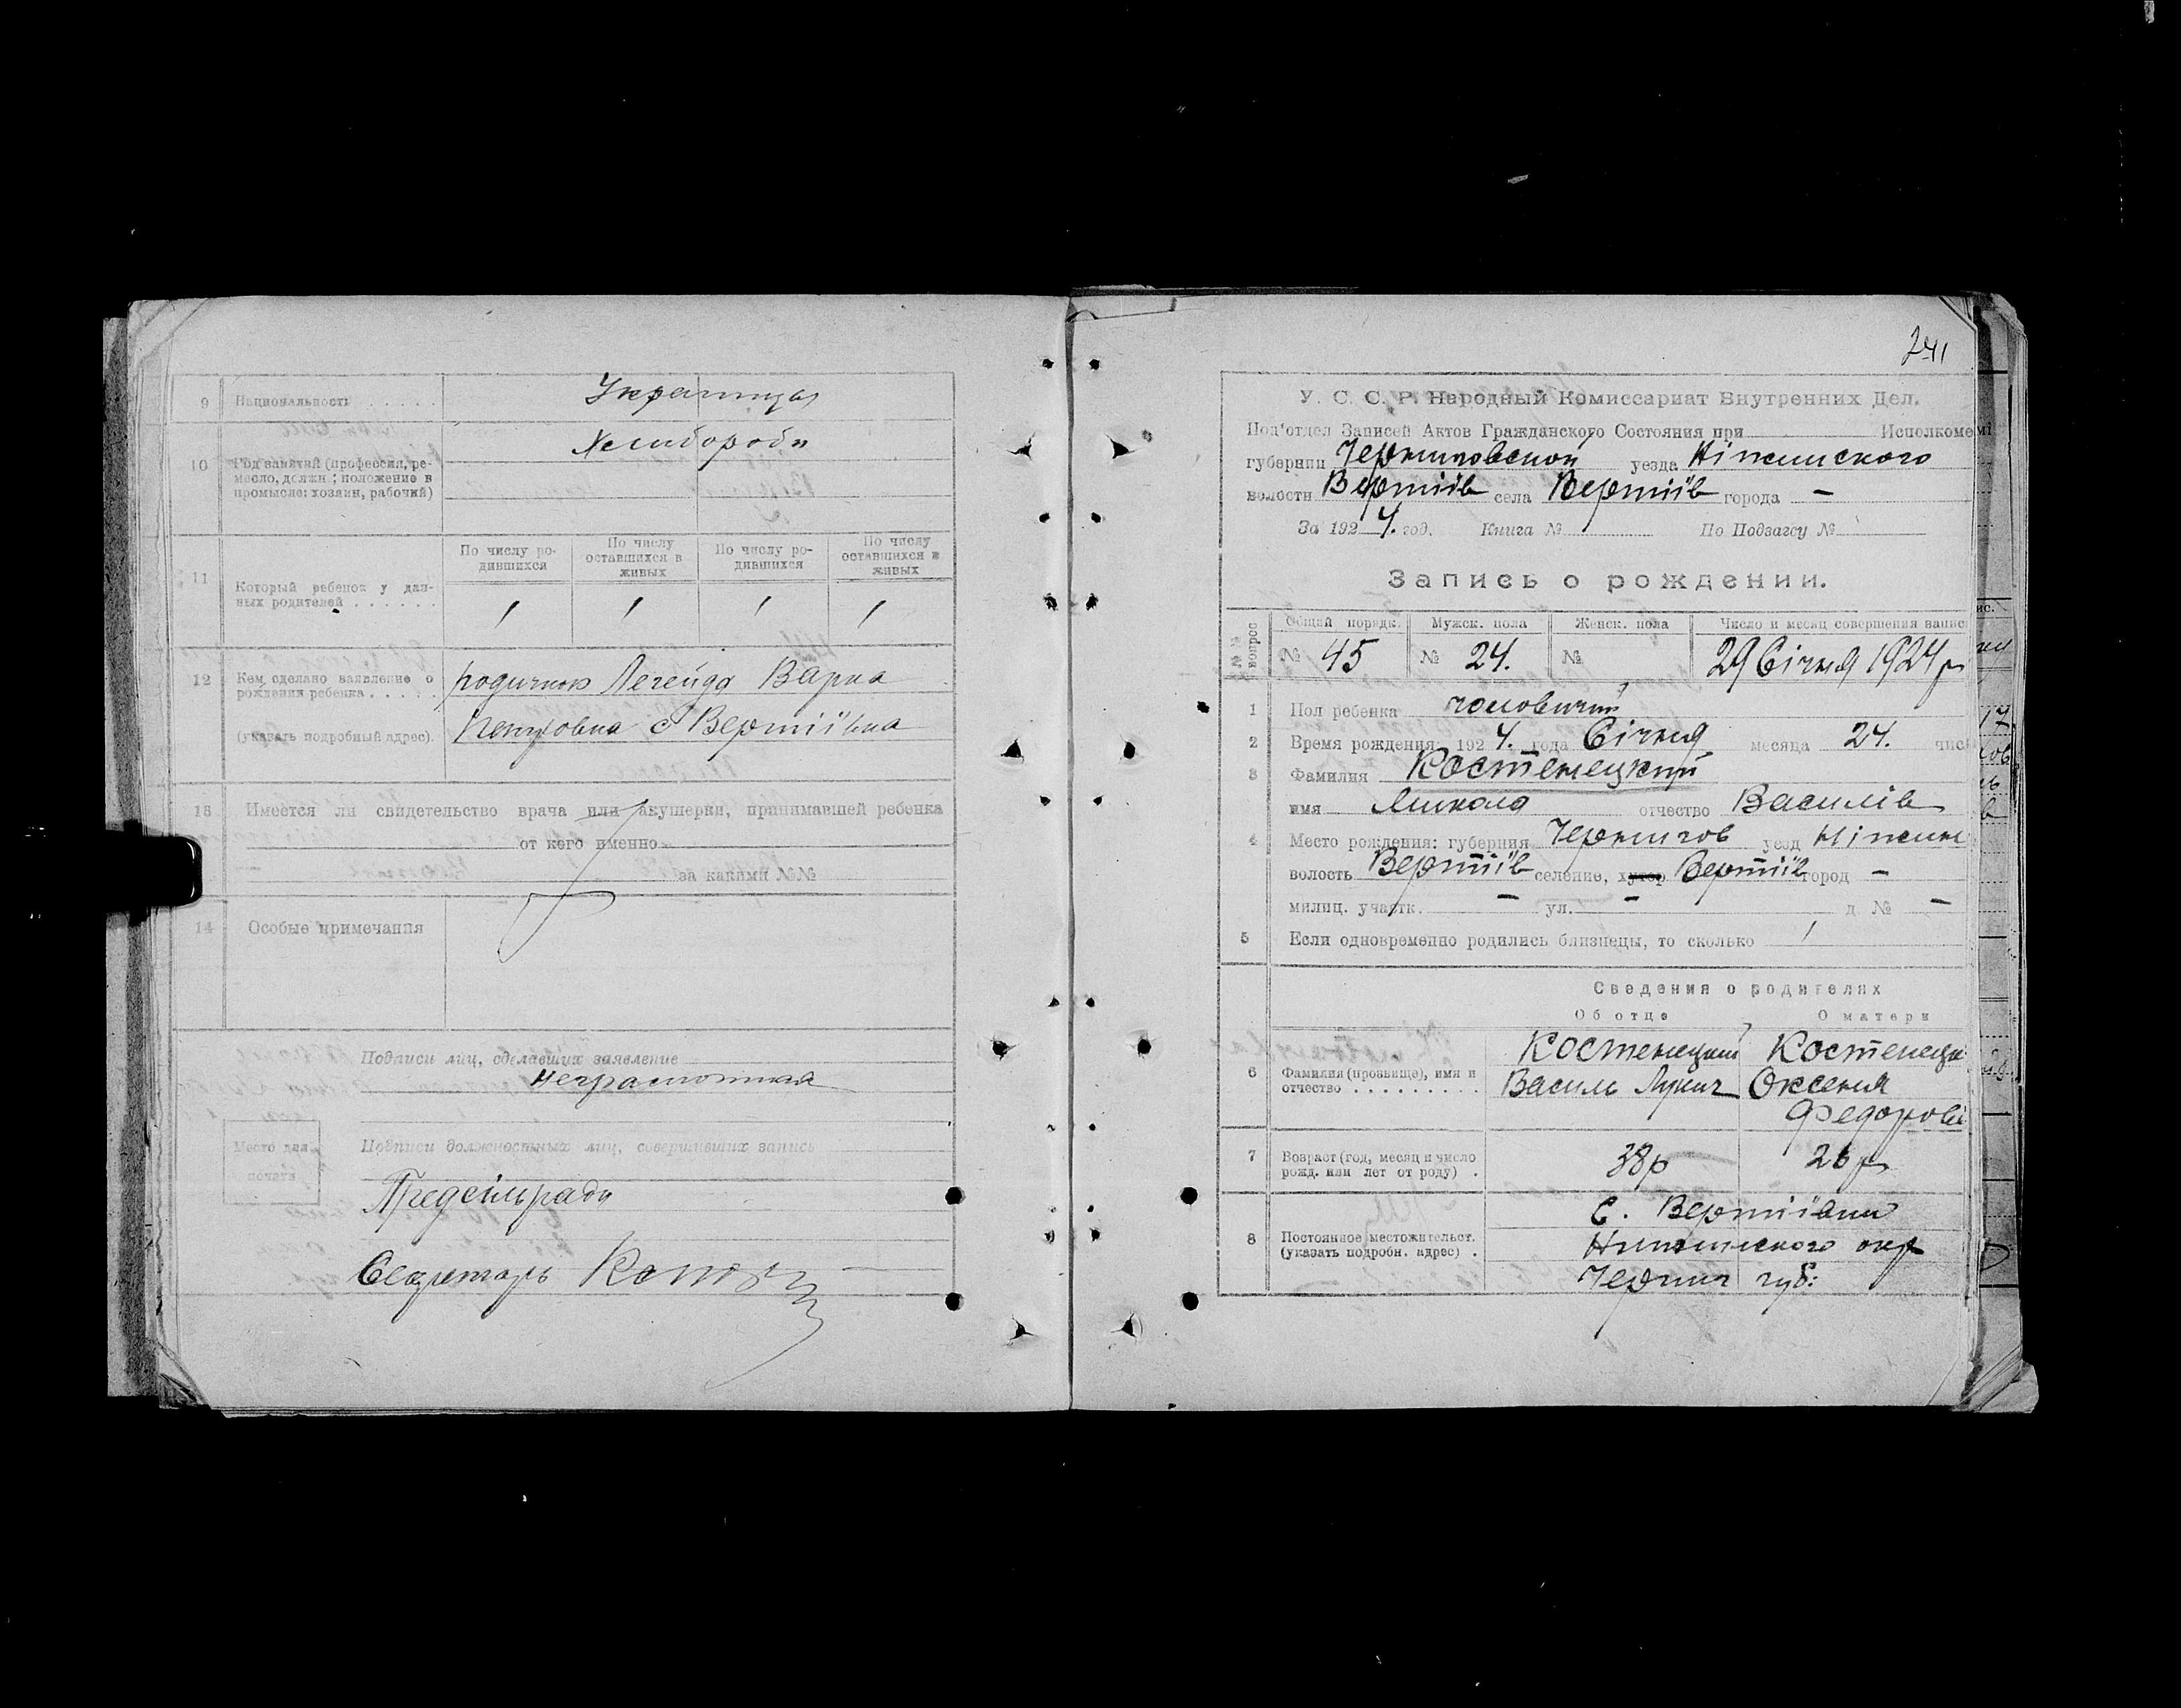 9 Национальность Українцы
10 Род занятий (профессия, ре-
месло, должн.; положение в
промысле: хозяин, рабочий)
Хлибороби
11 Который ребенок у дан-
ных родителей
По числу ро-
дившихся
По числу
оставшихся в
живых
По числу ро-
дившихся
По числу
оставшихся в
живых
1 1 1 1
12 Кем сделано заявление о
рождении ребенка
(указать подробный адрес).
Легейда Варка
с Вертіївка
13 Имеется ли свидетельство врача или акушерки, принимавшей ребенка
от кого именно
за какими №№
14 Особые примечания
Подписи лиц, сделавших заявление
неграмотная
Место для
печати
Подписи должностных лиц, совершивших запись
Предсільради
Секретарь
241
У. С. С. Р. Народный Комиссариат Внутренних Дел.
Под'отдел Записей Актов Гражданского Состояния при Исполкоме
губернии Черниговской уезда Ніжинского
волости Вертіїв села Вертіїв города —
За 1924. год. Книга № По Подзагсу №
Запись о рождении.
№№ вопрос
Общий порядк. Мужск. пола Женск. пола Число и месяц совершения запис
№ 45 № 24. № 29 Січня 1924 р
1 Пол ребенка чоловичий
2 Время рождения 1924. года Січня месяца 24. чис
3 Фамилия Костенецкий
имя Микола отчество Василів
4 Место рождения: губерния Чернигов уезд Ніжин
волость Вертіїв селение, хутор Вертіїв город —
милиц. участк. — ул. — д № —
5 Если одновременно родились близнецы, то сколько 1
Сведения о родителях
Об отце О матери
6 Фамилия (прозвище), имя и
отчество
Костенецкий Костенецк
Василь Лукич Оксения
Федорові
7 Возраст (год, месяц и число
рожд. или лет от роду)
38р 26 р
8 Постоянное местожительст.
(указать подробн. адрес)
С. Вертіївки
Ниженского окр
Черниг губ: